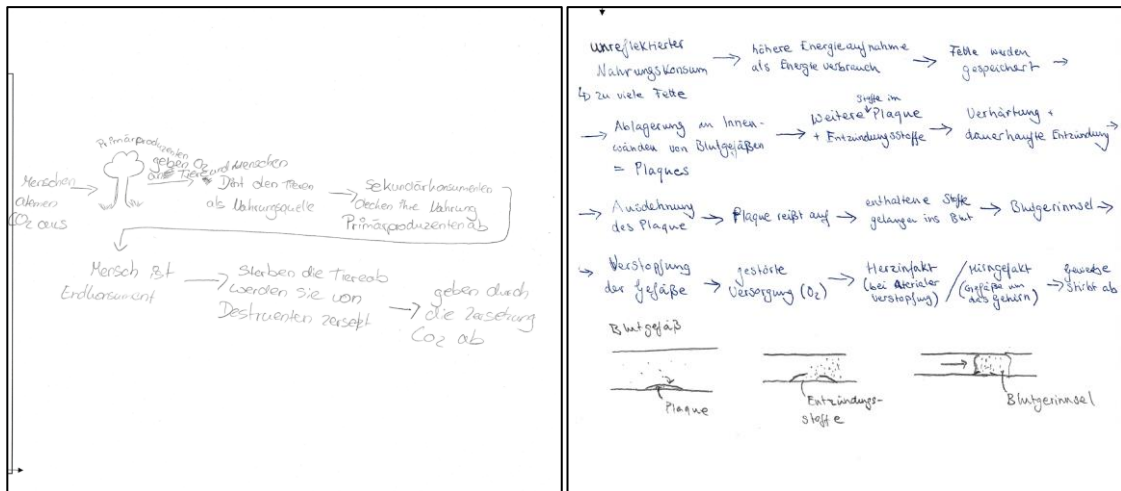 Primärproduzenten
geben O₂
an Tiere und Menschen
Menschen
atmen
CO₂ aus
Dint den Tieren
als Nahrungsquelle
Sekundärkonsumenten
Decken ihre Nahrung
Primärproduzenten ab
Mensch ist
Endkonsument
sterben die Tiere ab
werden sie von
Destruenten zersetzt
geben durch
die Zersetzung
CO₂ ab
unreflektierter
Nahrungskonsum
↳ zu viele Fette
höhere Energieaufnahme
als Energieverbrauch
Fette werden
gespeichert
Ablagerung an Innen-
wänden von Blutgefäßen
= Plaques
Stoffe im
Weitere Plaque
+ Entzündungsstoffe
Verhärtung +
dauerhafte Entzündung
Ausdehnung
des Plaque
Plaque reißt auf
enthaltene Stoffe
gelangen ins Blut
Blutgerinnsel
Verstopfung
der Gefäße
gestörte
Versorgung (O₂)
Herzinfakt
(bei Aterieler
verstopfung)
/ Hirngefakt
(Gefäße um
das gehirn)
Gewebe
stirbt ab
Blutgefäß
Plaque
Entzündungs-
stoffe
Blutgerinnsel